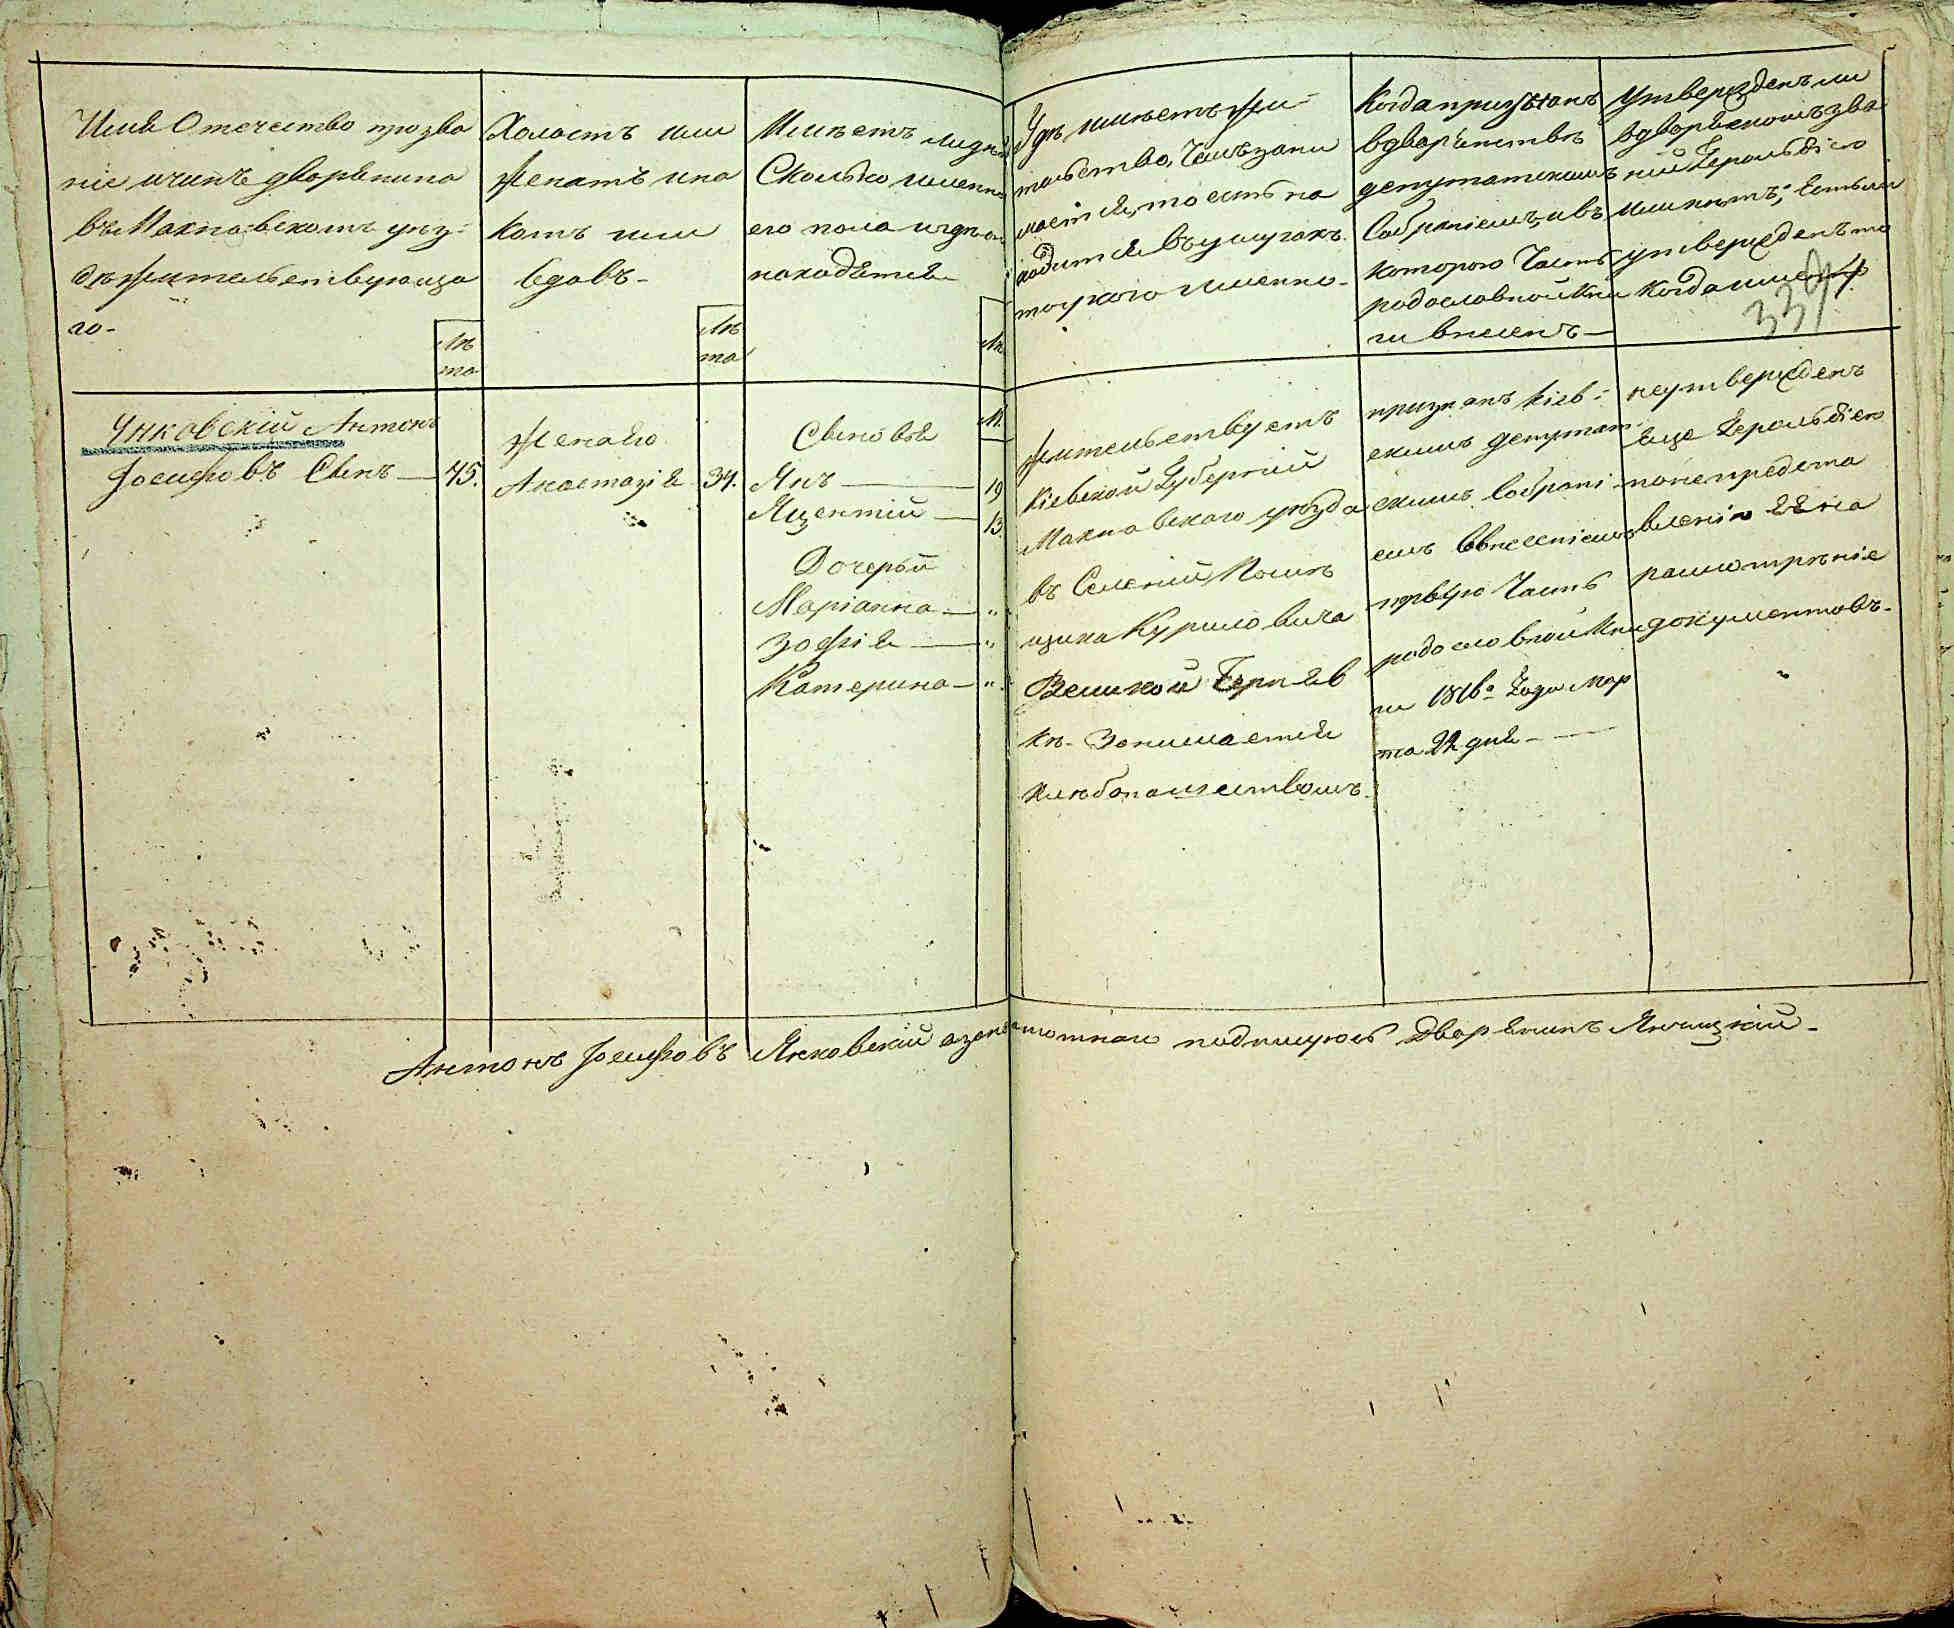 Имя Отечество прозва
ніе и чинъ дворянина
въ Махновскомъ уез-
дѣ жительствующа
го-
Лѣ
та
Холостъ или
женатъ и на
комъ или
вдовъ-
Лѣ
та
Имѣетъ ли дѣтей
Сколько именно
его пола и гдѣ они
находятся
Лѣ
Гдѣ имѣетъ жи-
тельство, Чемъ зани
мается, то есть на
ходится въ услугахъ
то у кого именно-
Когда признанъ
в дворянствѣ
депутатскимъ
Собраніемъ, и въ
которою Часть
родословной кни
ги внесенъ-
Утвержденъ ли
в дворянскомъ зва
ніи Герольдіею
или нѣтъ; Естьли
утвержденъ то
когда именно
339
Янковскій Антонъ
Іосифовъ Сынъ — 45.
женат
Анастазія 34.
Сыновья
М.
Янъ — 19
Яцентій — 13
Дочерьй
Маріанна — "
Зофія — "
Катерина — "
жительствуетъ
Кіевской Губерніи
Махновскаго уезда
въ Селеніи Помѣ
щика Куриловича
Великой Черняв
кѣ- Занимается
хлѣбопашествомъ.
признанъ Кіев-
скимъ депутат
скимъ собрані-
емъ со внесеніемъ
первую Часть
родословной кни
ги 1816го Года Мар
та 22 дня —
неутвержденъ
Еще Герольдіею
по непредста
вленію Ея на
расмотрѣніе
документовъ-
Антонъ Іосифовъ Янковскій а за неграмотнаго подпишусь Дворянинъ